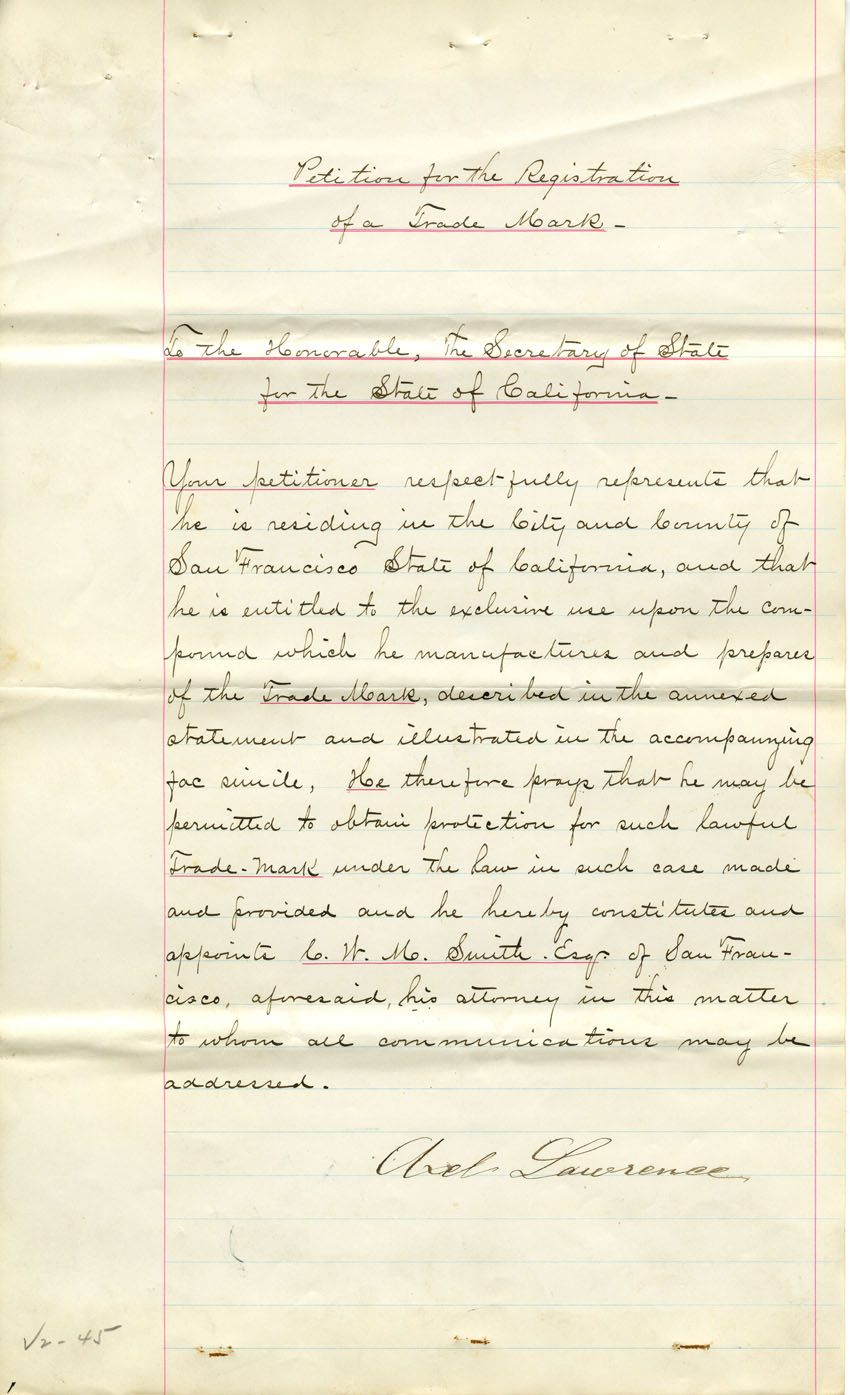 Petition for the Registration
of a Trade Mark -
To the Honorable, The Secretary of State
for the State of California -
Your petitioner respectfully represents that
he is residing in the City and County of
San Francisco State of California, and that
he is entitled to the exclusive use upon the com-
pound which he manufactures and prepares
of the Trade Mark, described in the annexed
statement and illustrated in the accompanying
fac simile, He therefore prays that he may be
permitted to obtain protection for such lawful
Trade-Mark under the law in such case made
and provided and he hereby constitutes and
appoints C. W. M. Smith. Esqr. of San Fran-
cisco, aforesaid, his attorney in this matter
to whom all communications may be
addressed.
Axel Lawrence
V2-45